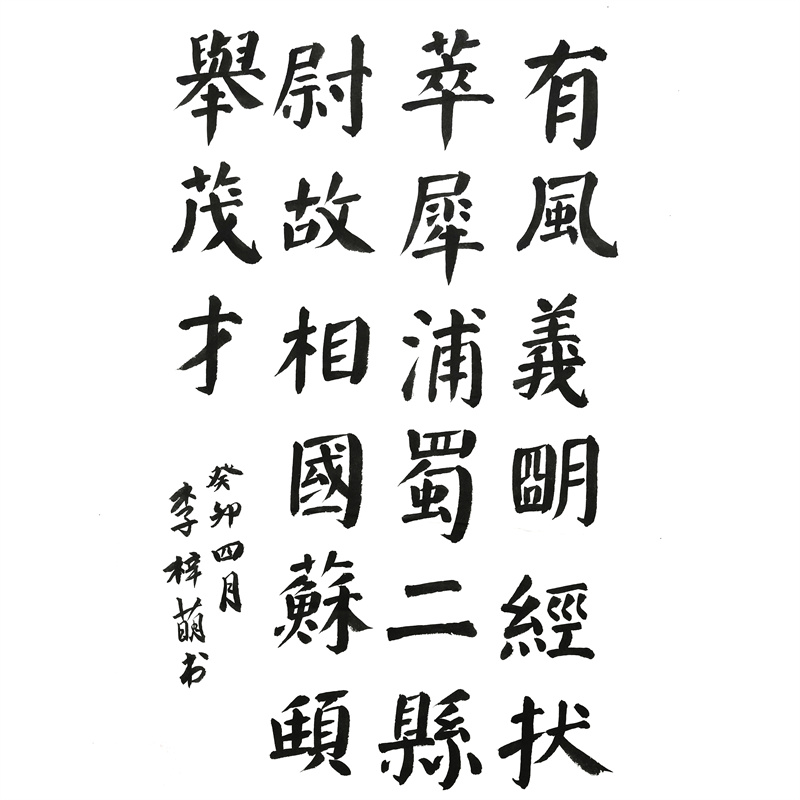 有風義朙經拔
萃犀浦蜀二縣
尉故相國蘇頲
舉茂才
癸卯四月
李梓萌书